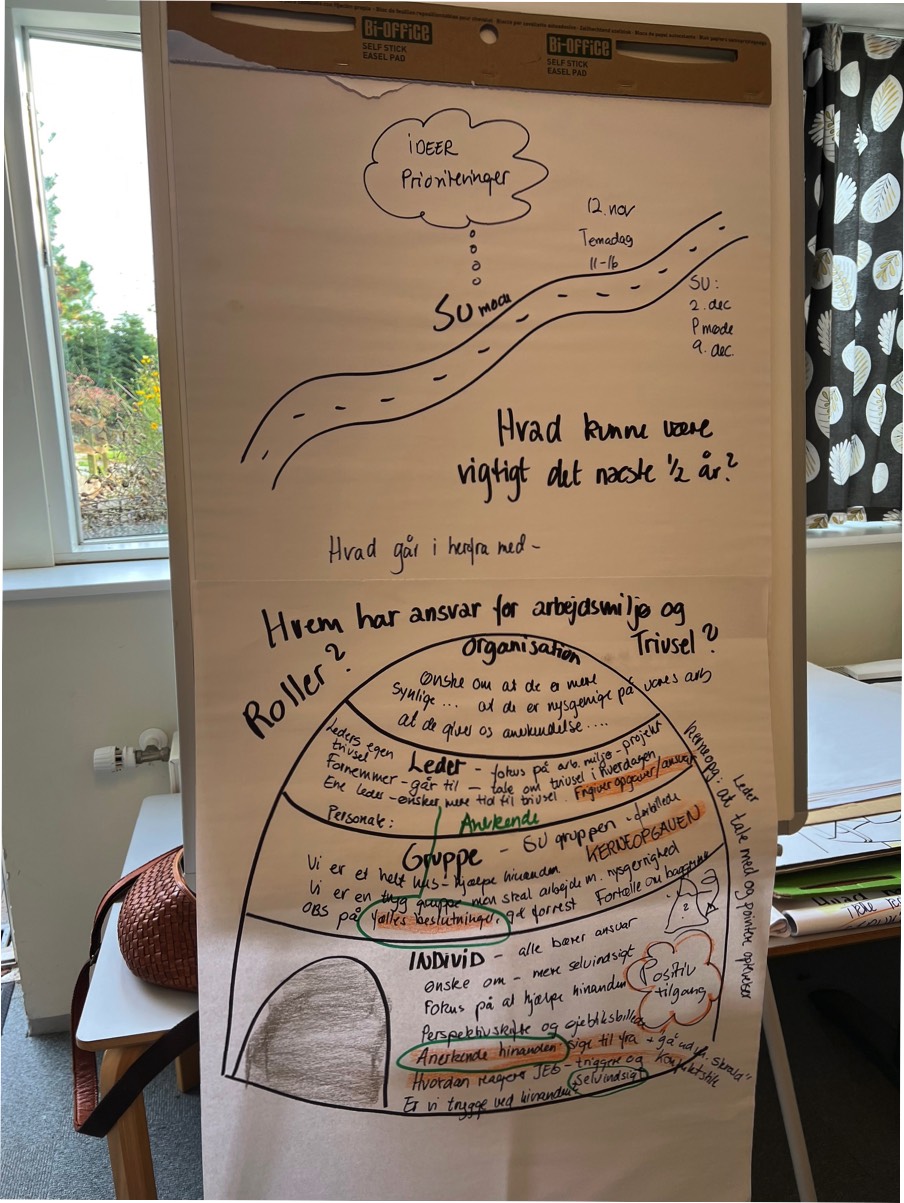 Bi-Office
SELF STICK
EASEL PAD
Bi-Office
SELF STICK
EASEL PAD
iDEER
Prioriteringer
12. nov
Temadag
11-16
SU møde
SU:
2. dec
P møde
9. dec.
Hvad kunne være
vigtigt det næste 1/2 år?
Hvad går i herfra med -
Hvem har ansvar for arbejdsmiljø og
Trivsel?
Roller?
Organisation
Ønske om at de er mere
synlige ... at de er nysgerrige på vores arb
at de giver os anerkendelse....
Leders egen
trivsel
Leder - fokus på arb. miljø - projekt
Fornemmer - går til - tale om trivsel i hverdagen
Ene leder - ønsker mere tid til trivsel. Engiver opgaver/ansvar
Personale:
Anerkende
Gruppe - SU gruppen - forbillede
KERNEOPGAVEN
Vi er et helt hus - hjælpe hinanden
Vi er en tryg gruppe man skal arbejde m. nysgerrighed
OBS på fælles beslutninger, gå forrest Fortælle om
kerneopg: at
Leder tale med og pointere oplevelser
INDIVID - alle bærer ansvar
Ønske om - mere selvindsigt
Fokus på at hjælpe hinanden
Positiv
tilgang
Perspektivskifte og øjebliksbillede
Anerkende hinanden sige til fra + gå ud fr. skrald"
Hvordan reagerer JEG - triggere og konfliktstile
selvindsigt
Er vi trygge ved hinanden